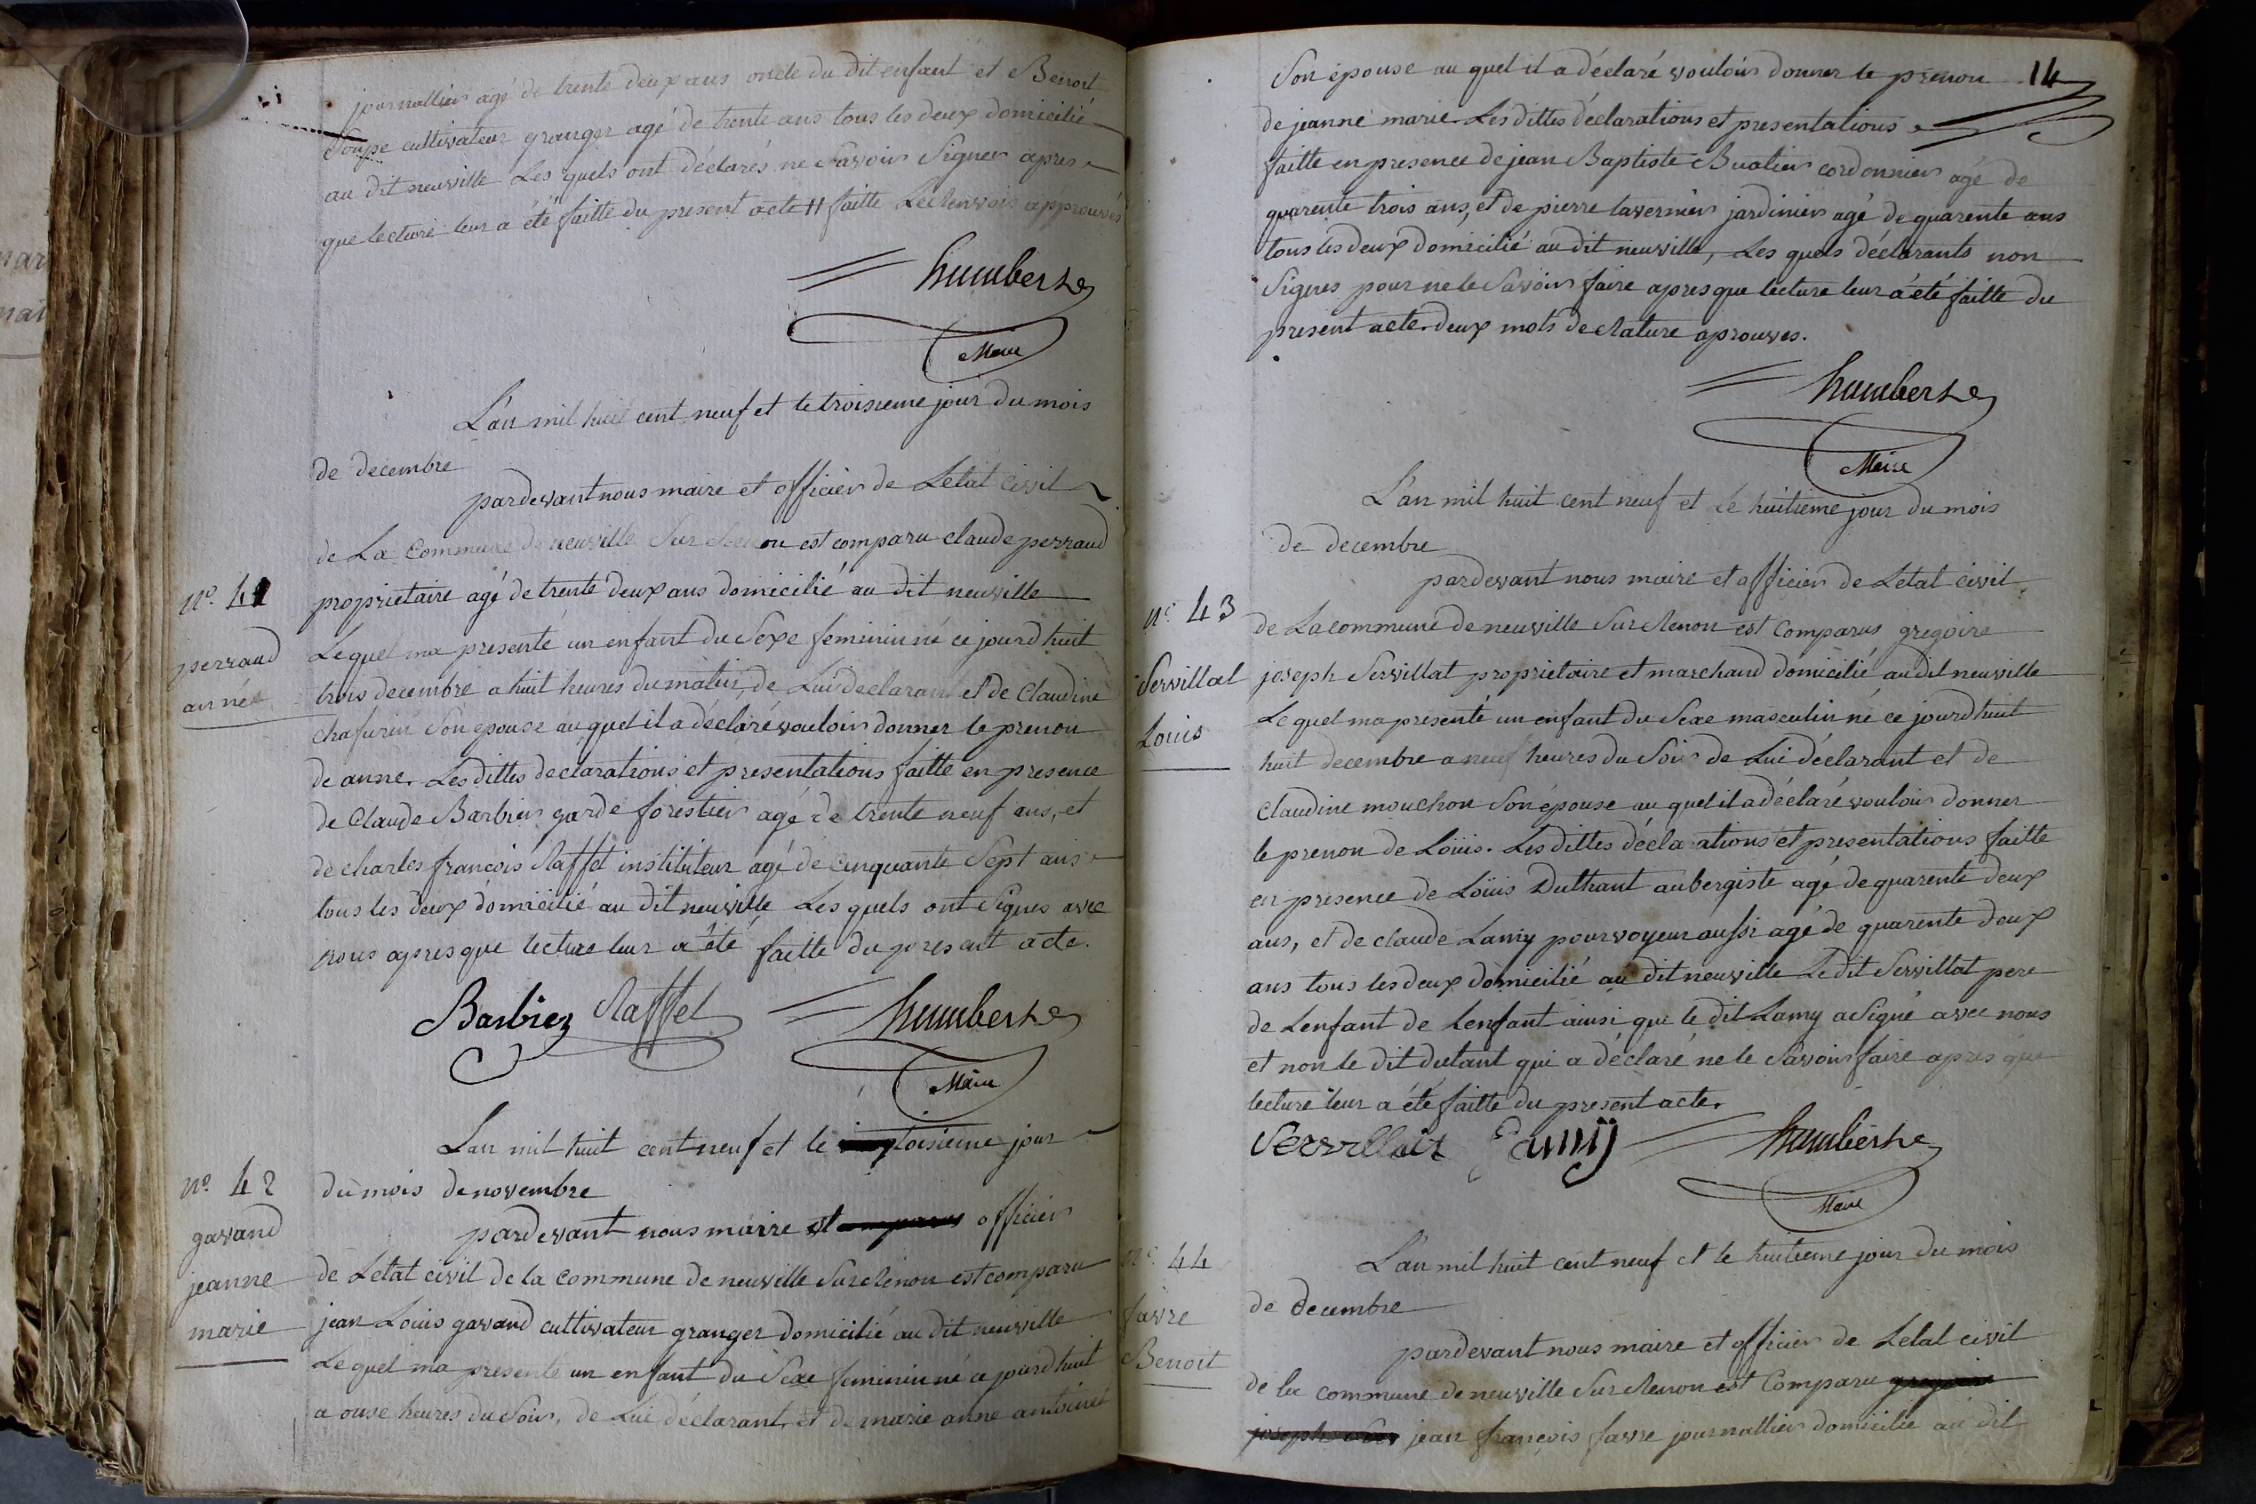 journallier agé de trente deux ans oncle du dit enfant et Benoit
Soupe cultivateur granger agé de trente ans tous les deux domicilié
au dit neuville Les quels ont déclarés ne Savoir Signer apres
que lecture leur a été faitte du present acte # faitte Le renvois approuvés
humbert
Maire
L'an mil huit cent neuf et le troisieme jour du mois
de decembre
pardevant nous maire et officier de Letat civil
de La Commune de neuville Sur Renon est comparu claude perraud
n° 41
proprietaire agé de trente deux ans domicilié au dit neuville
perraud
Le quel ma presenté un enfant du Sexe feminin né ce jourdhuit
année
trois decembre a huit heures du matin, de Lui declarant et de Claudine
chafurin Son epouse au quel il a déclaré vouloir donner le prenon
de anne. Les dittes declarations et presentations faitte en presence
de Claude Barbier garde forestier agé de trente neuf ans, et
de charles françois Raffet instituteur agé de cinquante Sept ans
tous les deux domicilié au dit neuville Les quels ont Signés avec
nous apres que lecture leur a été faitte du present acte.
Barbier Raffet humbert
Maire
L'an mil huit cent neuf et le toisieme jour
n° 42
du mois de novembre
gavand
pardevant nous maire et officier
jeanne
de Letat civil de la commune de neuville Sur Renon est comparu
marie
jean Louis gavand cultivateur granger domicilié au dit neuville
Le quel ma presenté un enfant du Sexe feminin né ce jourdhuit
a onse heures du Soir, de Lui déclarant, et de marie anne antoinet
14
Son épouse au quel il a déclaré vouloir donner le prenon
de jeanne marie. Les dittes déclarations et presentations
faitte en presence de jean Baptiste Buatier cordonnier agé de
quarente trois ans, et de pierre tavernier jardinier agé de quarente ans
tous les deux domicilié au dit neuville, Les quels déclarants non
Signes pour ne le Savoir faire apres que lecture leur a été faitte du
present acte. deux mots de rature aprouves.
humbert
Maire
L'an mil huit cent neuf et Le huitieme jour du mois
de decembre
pardevant nous maire et officier de Letat civil
n° 43
de La commune de neuville Sur Renon est Comparus gregoire
Servillat
joseph Servillat proprietaire et marchand domicilié au dit neuville
Louis
Le quel ma presenté un enfant du Sexe masculin né ce jourdhuit
huit decembre a neuf heures du Soir de Lui déclarant et de
Claudine mouchon Son épouse au quel il a déclaré vouloir donner
le prenon de Loüis. Les dittes déclarations et presentations faitte
en presence de Loüis Duthant aubergiste agé de quarente deux
ans, et de claude Lamy pourvoyeur aussi agé de quarente deux
ans tous les deux domicilié au dit neuville Le dit Servillat pere
de Lenfant de Lenfant ainsi que le dit Lamy a Signé avec nous
et non le dit dutant qui a déclaré ne le Savoir faire apres que
lecture leur a été faitte du present acte.
Servillat Lamy humbert
Maire
L'an mil huit cent neuf et le huitieme jour du mois
n° 44
de decembre
favre
pardevant nous maire et officier de Letat civil
Benoit
de la commune de neuville Sur Renon est Comparu gregoire
joseph jean françois favre journallier domicilie au dit